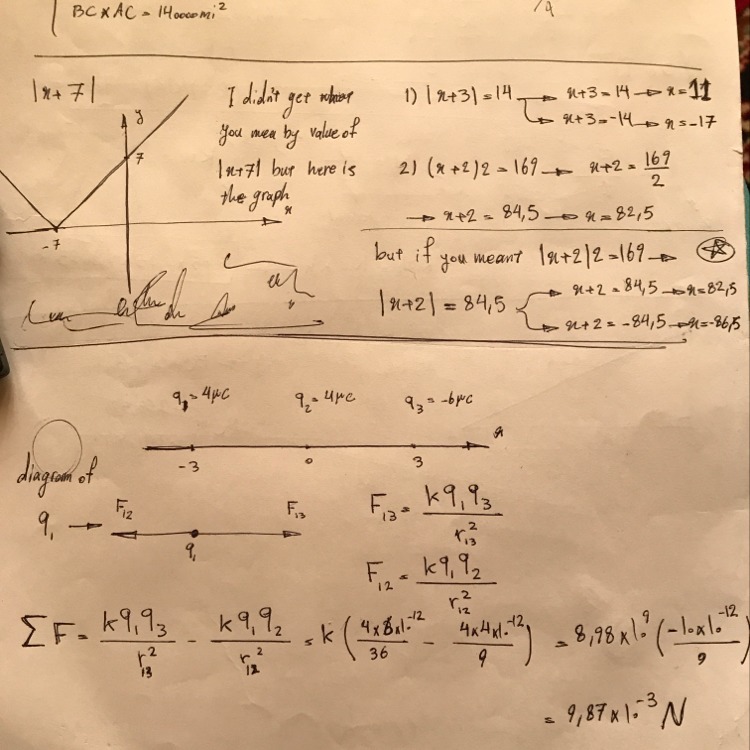 BC × AC = 140000mi²
|x+7|
y
7
-7
x
I didn't get what
you mea by value of
|x+7| but here is
the graph
1) |x+3| = 14 → x+3 = 14 → x = 11
→ x+3 = -14 → x = -17
2) (x+2)2 = 169 → x+2 = 169/2
→ x+2 = 84,5 → x = 82,5
but if you meant |x+2|2 = 169 →
|x+2| = 84,5 → x+2 = 84,5 → x = 82,5
→ x+2 = -84,5 → x = -86,5
q₁ = 4μC q₂ = 4μC q₃ = -6μC
-3 0 3 x
diagram of
q₁ → F₁₂ q₁ F₁₃
F₁₃ = kq₁q₃/r₁₃²
F₁₂ = kq₁q₂/r₁₂²
ΣF = kq₁q₃/r₁₃² - kq₁q₂/r₁₂² = k(4×6×10⁻¹²/36 - 4×4×10⁻¹²/9) = 8,98×10⁹(-10×10⁻¹²/9)
= 9,87×10⁻³ N